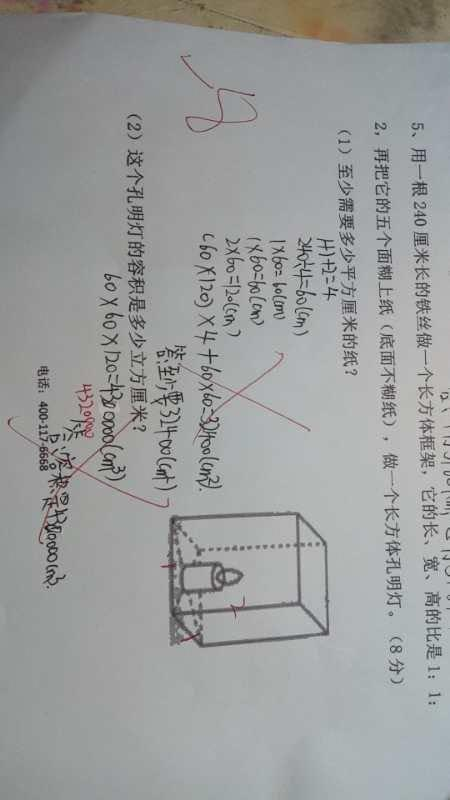 5、用一根 240 厘米长的铁丝做一个长方体框架，它的长、宽、高的比是 1：1：
2，再把它的五个面糊上纸（底面不糊纸），做一个长方体孔明灯。（8 分）
（1）至少需要多少平方厘米的纸？
1+1+2=4
240÷4=60(cm)
1×60=60(cm)
1×60=60(cm)
2×60=120(cm)
(60×120)×4+60×60=32400(cm²).
答:至少需要32400(cm²)
（2）这个孔明灯的容积是多少立方厘米？
60×60×120=4320000(cm³)
4320000
电话：400-117-6668
1
2
1